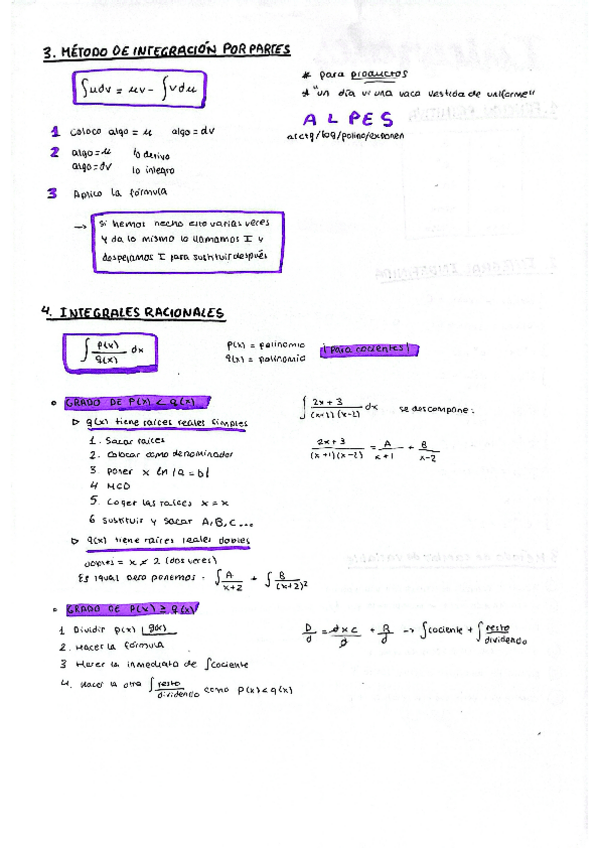 3. MÉTODO DE INTEGRACIÓN POR PARTES
∫udv = uv - ∫vdu
* para productos
* "un día vi una vaca vestida de uniforme"
A L P E S
arctg/log/polino/exponen
1 Coloco algo = u algo = dv
2 algo = u lo derivo
algo = dv lo integro
3 Aplico la fórmula
→ Si hemos hecho esto varias veces
y da lo mismo lo llamamos I y
despejamos I para sustituir después
4. INTEGRALES RACIONALES
∫ P(x)/q(x) dx
P(x) = polinomio
q(x) = polinomio
¡para cocientes!
GRADO DE P(x) < q(x)
▷ q(x) tiene raíces reales simples
1. Sacar raíces
2. Colocar como denominador
3. poner x ln |a = b|
4 MCD
5. Coger las raíces x = x
6 Sustituir y sacar A, B, C...
∫ 2x + 3/(x+1)(x-2) dx se descompone:
2x + 3/(x+1)(x-2) = A/x+1 + B/x-2
▷ q(x) tiene raíces reales dobles
dobles = x ≠ 2 (dos veres)
Es igual pero ponemos - ∫ A/x+2 + ∫ B/(x+2)²
GRADO DE P(x) ≥ q(x)
1 Dividir p(x) | q(x)
2. Hacer la fórmula
3 Hacer la inmediata de ∫cociente
4. Hacer la otra ∫ resto/dividendo como P(x) < q(x)
D/d = d x c/d + R/d → ∫cociente + ∫ resto/dividendo